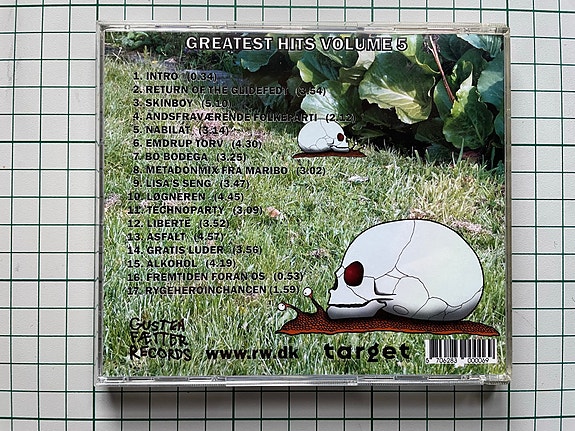 GREATEST HITS VOLUME 5
1. INTRO (0.34)
2. RETURN OF THE GLIDEFEDT (3.54)
3. SKINBOY (5.10)
4. ANDSFRAVÆRENDE FOLKEPARTI (2.12)
5. NABILAT (3.14)
6. EMDRUP TORV (4.30)
7. BO BODEGA (3.25)
8. METADONMIX FRA MARIBO (3.02)
9. LISA'S SENG (3.47)
10. LØGNEREN (4.45)
11. TECHNOPARTY (3.09)
12. LIBERTE (3.52)
13. ASFALT (4.57)
14. GRATIS LUDER (3.56)
15. ALKOHOL (4.19)
16. FREMTIDEN FORAN OS (0.53)
17. RYGEHEROINCHANCEN (1.59)
FÆTTER
RECORDS
www.rw.dk target
5 706283 000069